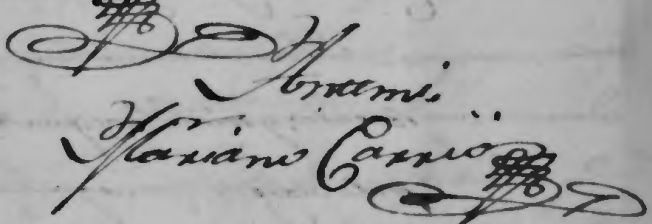 Antemi.
Mariano Carrió